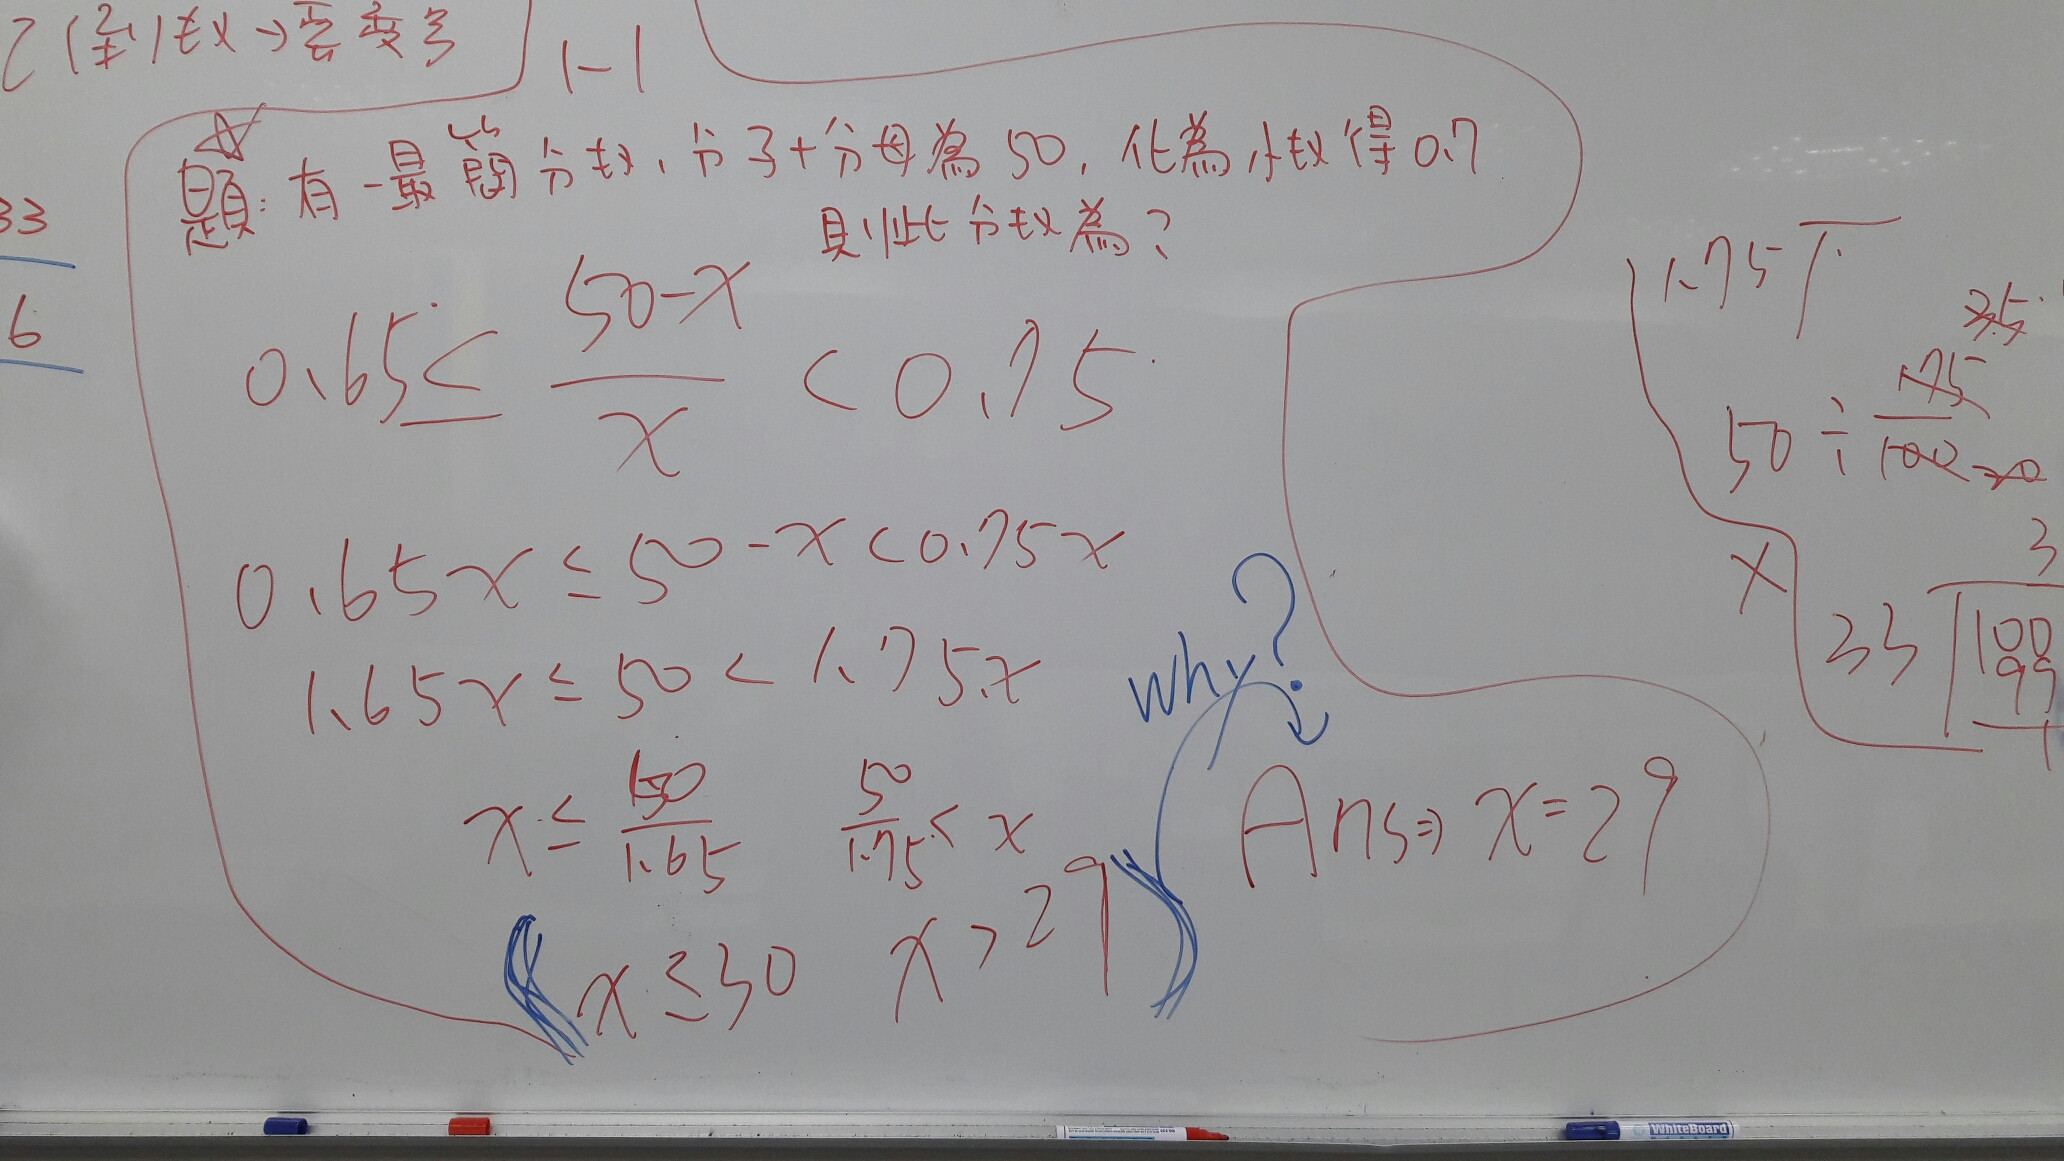 (2位)数→要变多
1-1
☆
題:有一最簡分數,分子+分母為50,化為小數得0.7
則此分數為?
33
6
0.65≤ (50-x)/x <0.75
0.65x≤50-x<0.75x
1.65x≤50<1.75x
x≤ 50/1.65 50/1.75 < x
x≤30 x>29
why?
Ans⇒x=29
1.75
35
50÷ 175/100
20
3
x
33 100
99
1
WhiteBoard